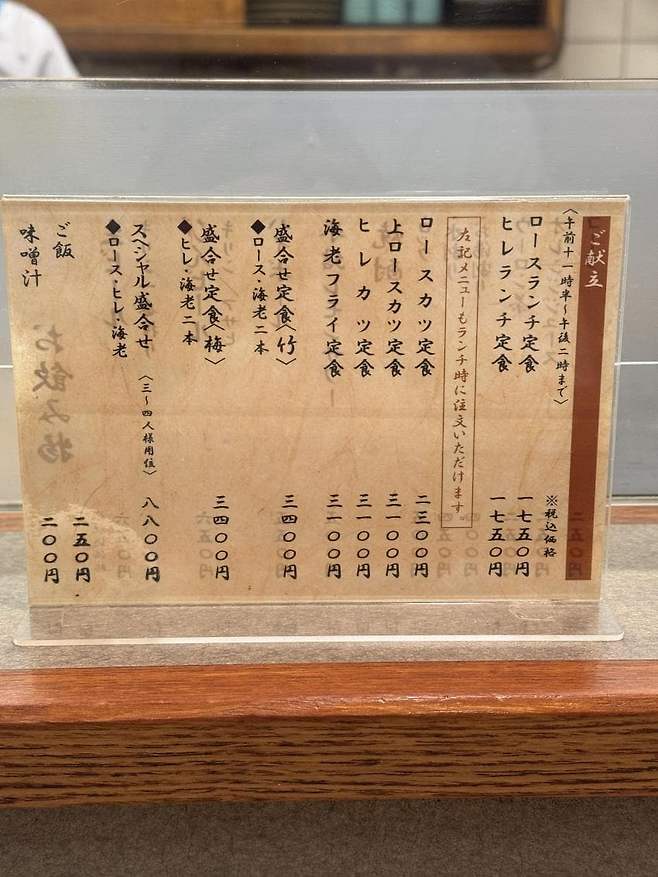 ご献立
〈午前十一時半〜午後二時まで〉
※税込価格
ロースランチ定食 一七五〇円
ヒレランチ定食 一七五〇円
左記メニューもランチ時に注文いただけます。
ロースカツ定食 二三〇〇円
上ロースカツ定食 三一〇〇円
ヒレカツ定食 三一〇〇円
海老フライ定食 三一〇〇円
盛合せ定食〈竹〉 三四〇〇円
◆ロース・海老二本
盛合せ定食〈梅〉 三四〇〇円
◆ヒレ・海老二本
スペシャル盛合せ〈三〜四人様用位〉 八八〇〇円
◆ロース・ヒレ・海老
ご飯 二五〇円
味噌汁 二〇〇円
お飲み物